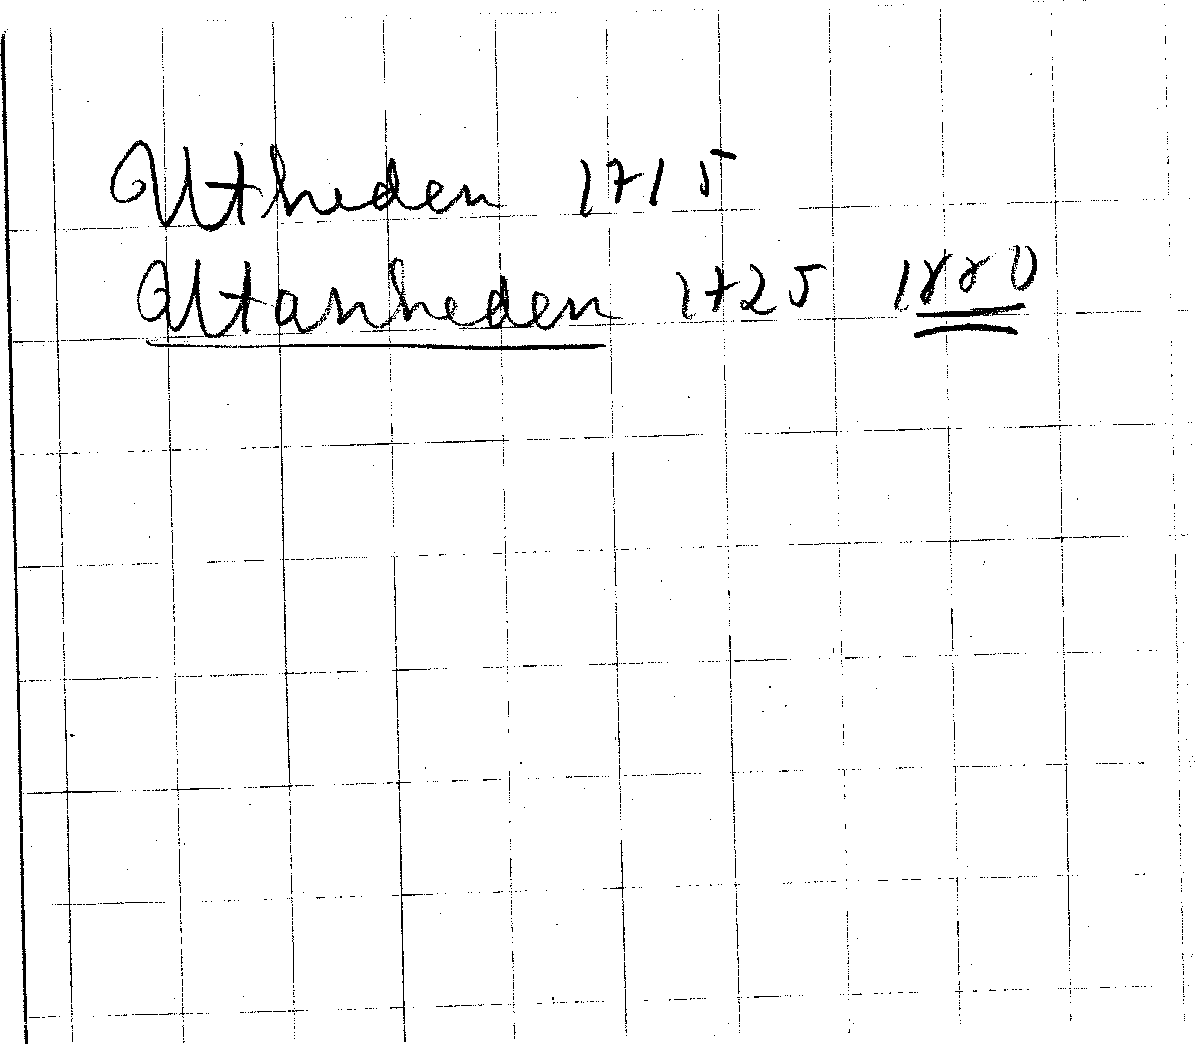 Utheden 1715
Utanheden 1725 1880